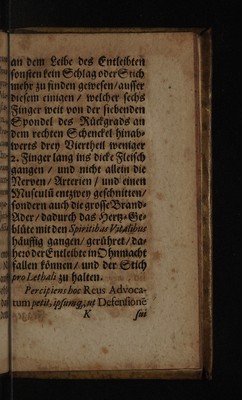 an dem Leibe des Entleibten
sonsten kein Schlag oder Stich
mehr zu finden gewesen / ausser
diesem einigen / welcher sechs
Finger weit von der siebenden
Spondel des Rückgrads an
dem rechten Schenckel hinab-
werts drey Viertheil weniger
2. Finger lang ins dicke Fleisch
gangen / und nicht allein die
Nerven / Arterien / und einen
Musculū entzwey geschnitten /
sondern auch die grosse Brand-
Ader / dadurch das Hertz-Ge-
blüte mit den Spiritibus Vitalibus
häuffig gangen / gerühret / da-
hero der Entleibte in Ohnmacht
fallen können / und der Stich
pro Lethali zu halten.
Percipiens hoc Reus Advoca-
tum petit, ipsumq; ut Defensionē
K sui